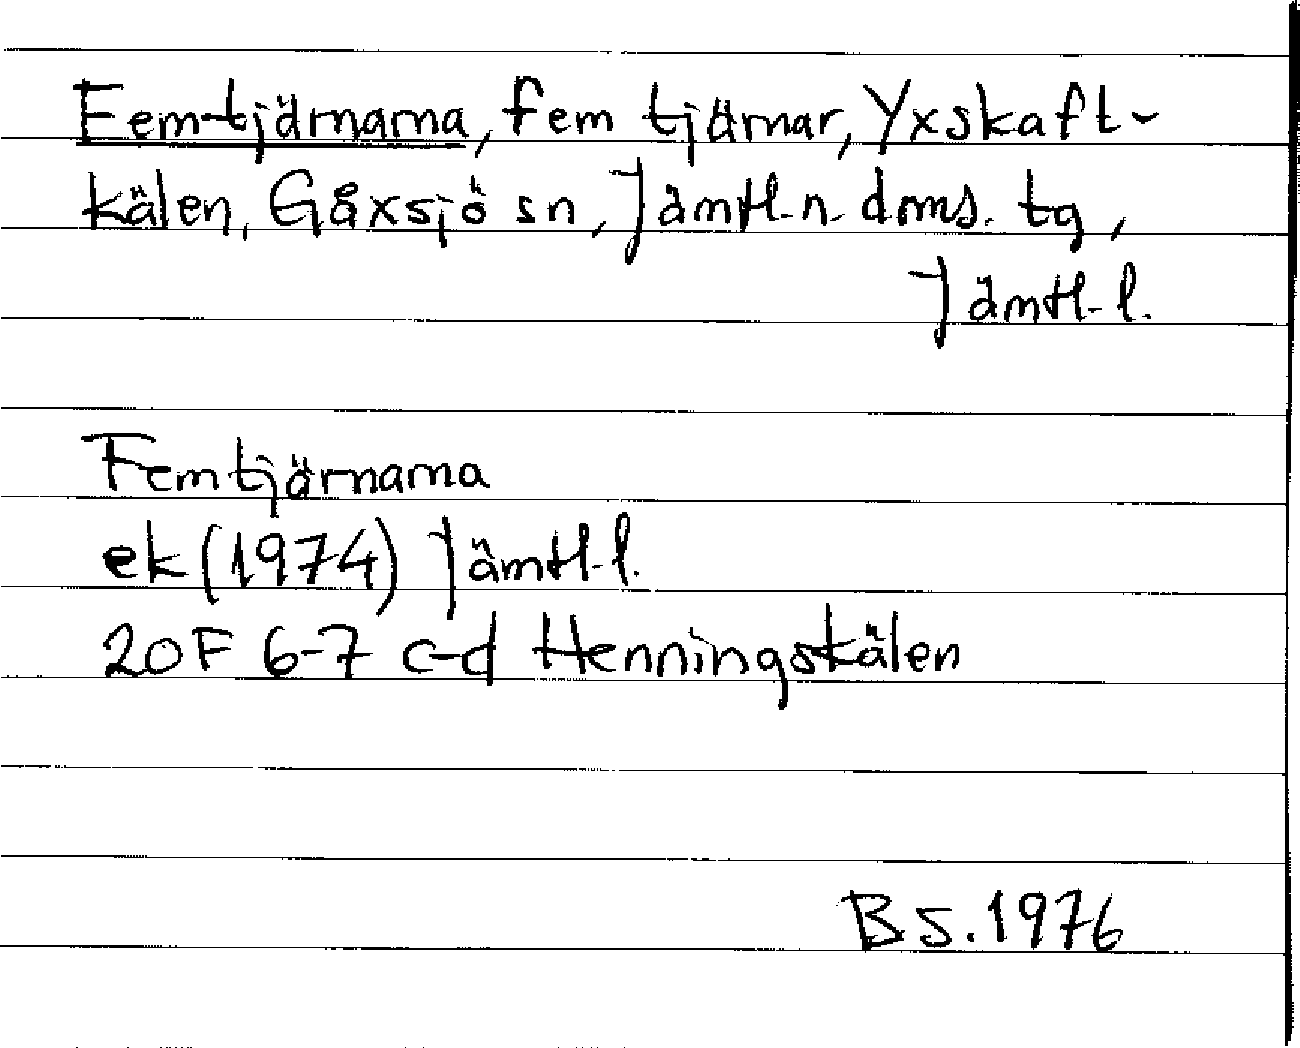 Femtjärnarna, fem tjärnar, Yxskaft-
kälen, Gåxsjö sn, Jämtl.n. doms. tg,
Jämtl. l.
Femtjärnarna
ek (1974) Jämtl. l.
20F 6-7 c-d Henningskälen
BS. 1976